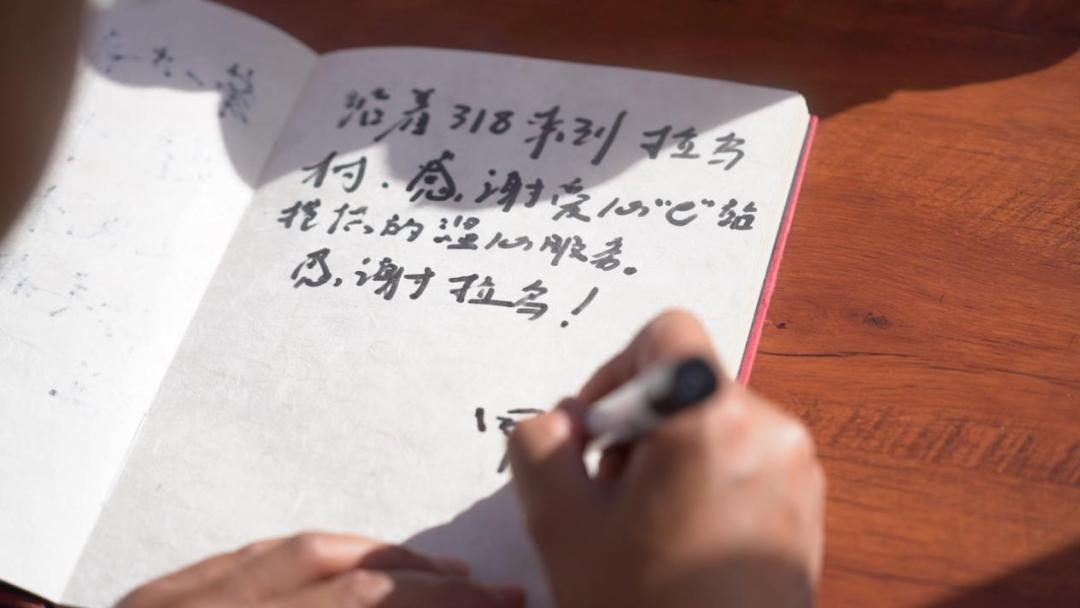 沿着318来到拉乌
村.感谢爱心"e"站
提供的温心服务。
感谢拉乌!